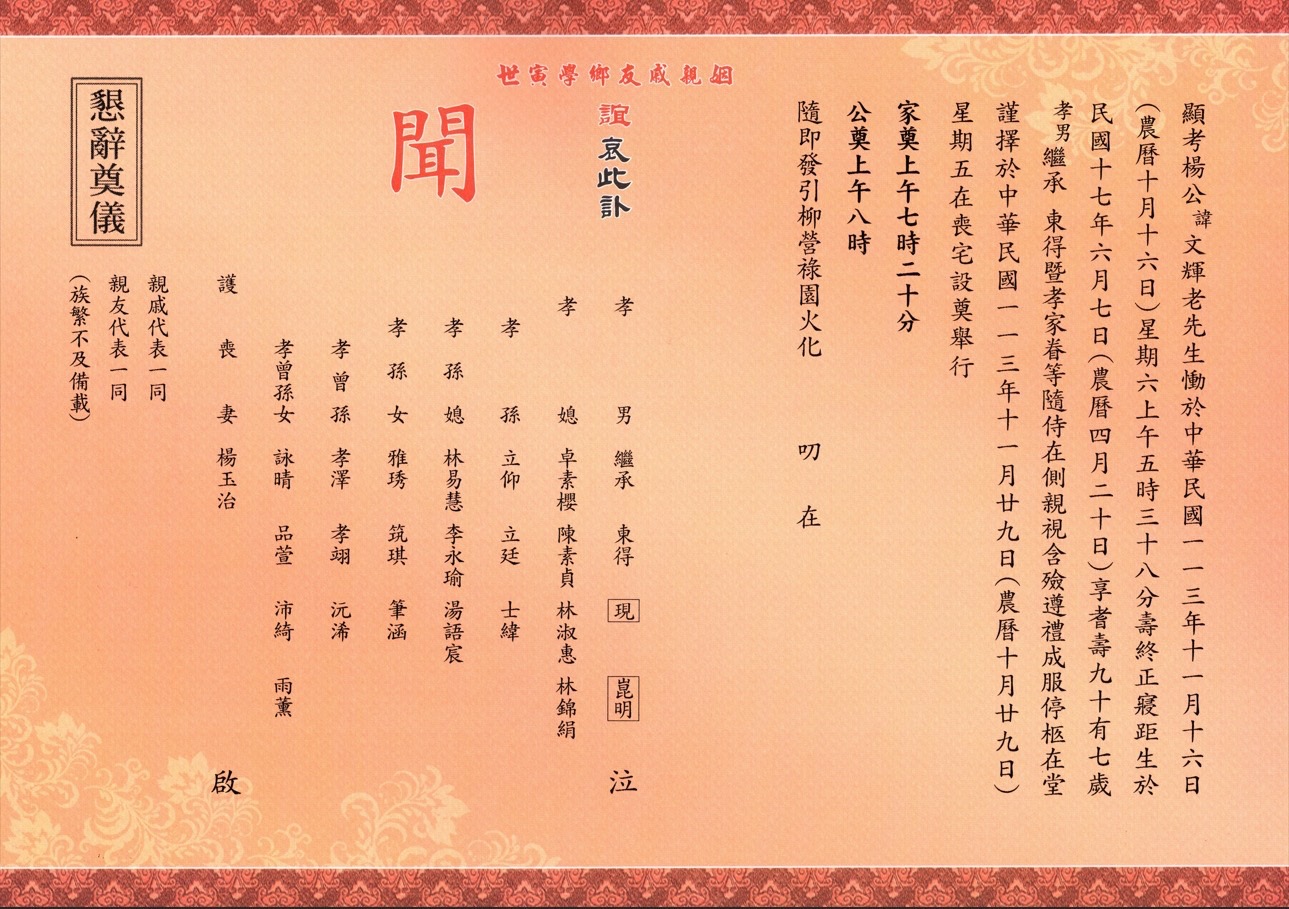 顯考楊公諱文輝老先生慟於中華民國一一三年十一月十六日
(農曆十月十六日)星期六上午五時三十八分壽終正寢距生於
民國十七年六月七日(農曆四月二十日)享耆壽九十有七歲
孝男繼承 東得暨孝家眷等隨侍在側親視含殮遵禮成服停柩在堂
謹擇於中華民國一一三年十一月廿九日(農曆十月廿九日)
星期五在喪宅設奠舉行
家奠上午七時二十分
公奠上午八時
隨即發引柳營祿園火化 叨 在
姻親戚友鄉學寅世
誼哀此訃
聞
孝男 繼承 東得 現 崑明 泣
孝媳 卓素櫻 陳素貞 林淑惠 林錦絹
孝孫 立仰 立廷 士緯
孝孫媳 林易慧 李永瑜 湯語宸
孝孫女 雅琇 筑琪 筆涵
孝曾孫 孝澤 孝翊 沅浠
孝曾孫女 詠晴 品萱 沛綺 雨薰
護喪妻 楊玉治 啟
親戚代表一同
親友代表一同
(族繁不及備載)
懇辭奠儀